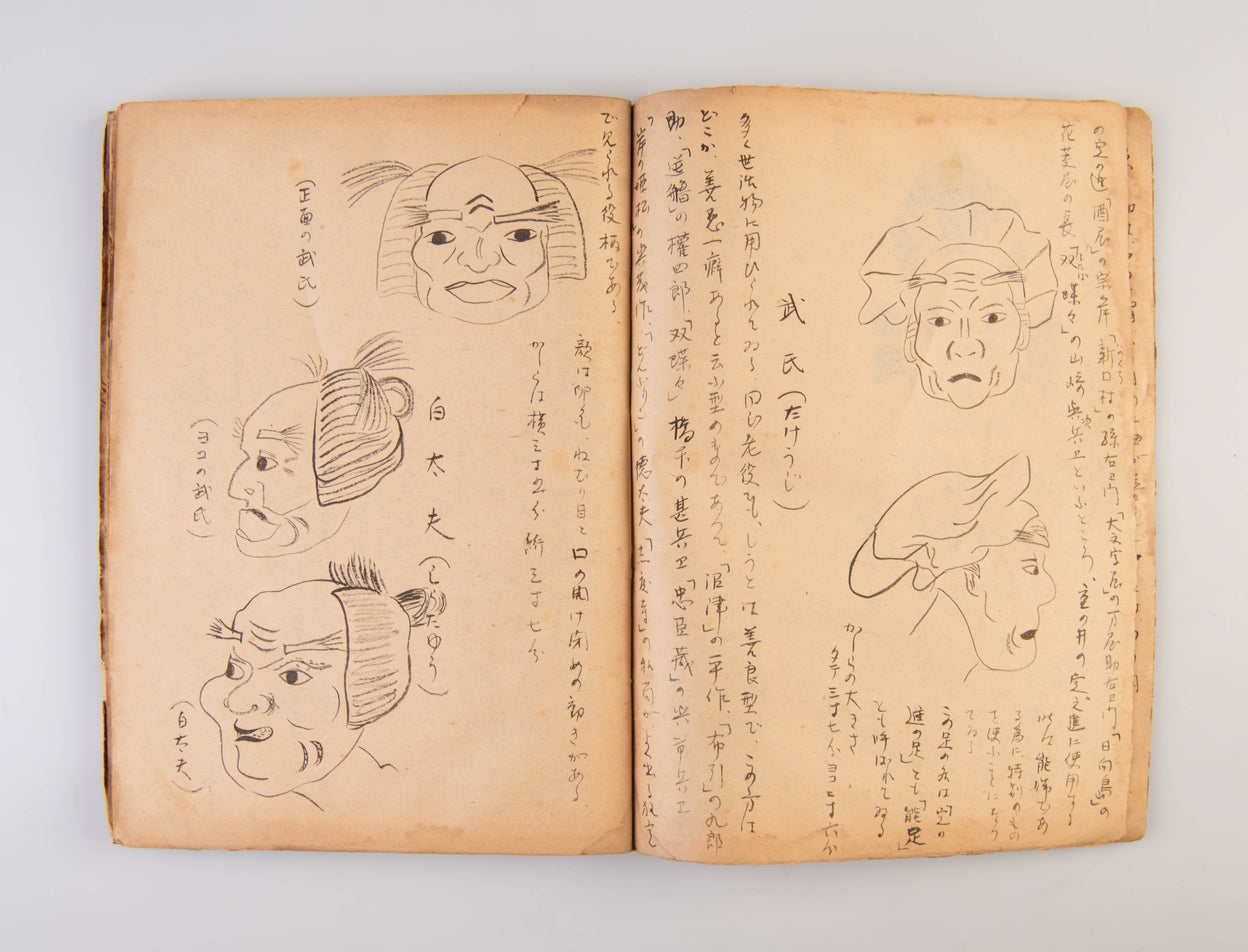 の定の進「酒屋」の宗岸「新口村」の孫右ヱ門、「大文字屋」の万屋助右ヱ門「日向島」の
花菱屋の長「双蝶々」の山崎與次兵ヱといふところ、
の定之進に使用する
時は能師であ
る為に、特別のもの
を使ふことになつ
てゐる
この足の名は「定の
進の足」とも「能足」
とも呼ばれてゐる
かしらの大きさ
タテ三寸七分ヨコ二寸六分
武氏(たけうじ)
多く世話物に用ひられてゐる、同じ老役でも、しうとは善良型で、この方は
どこか、善悪一癖あると云ふ型のものであつて、「沼津」の平作、「布引」の九郎
助、「逆艪」の權四郎、「双蝶々」橋本の甚兵ヱ「忠臣蔵」の與市兵ヱ
「岸の姫松」の與茂作、「どんぶりこ」の徳太夫「志度寺」の
で見られる役柄である。
顔は卵色、ねむり目と口の開け閉めの動きがある。
かしらは横三寸五分 三寸七分
白太夫(しらたゆう)
(正面の武氏)
(ヨコの武氏)
(白太夫)